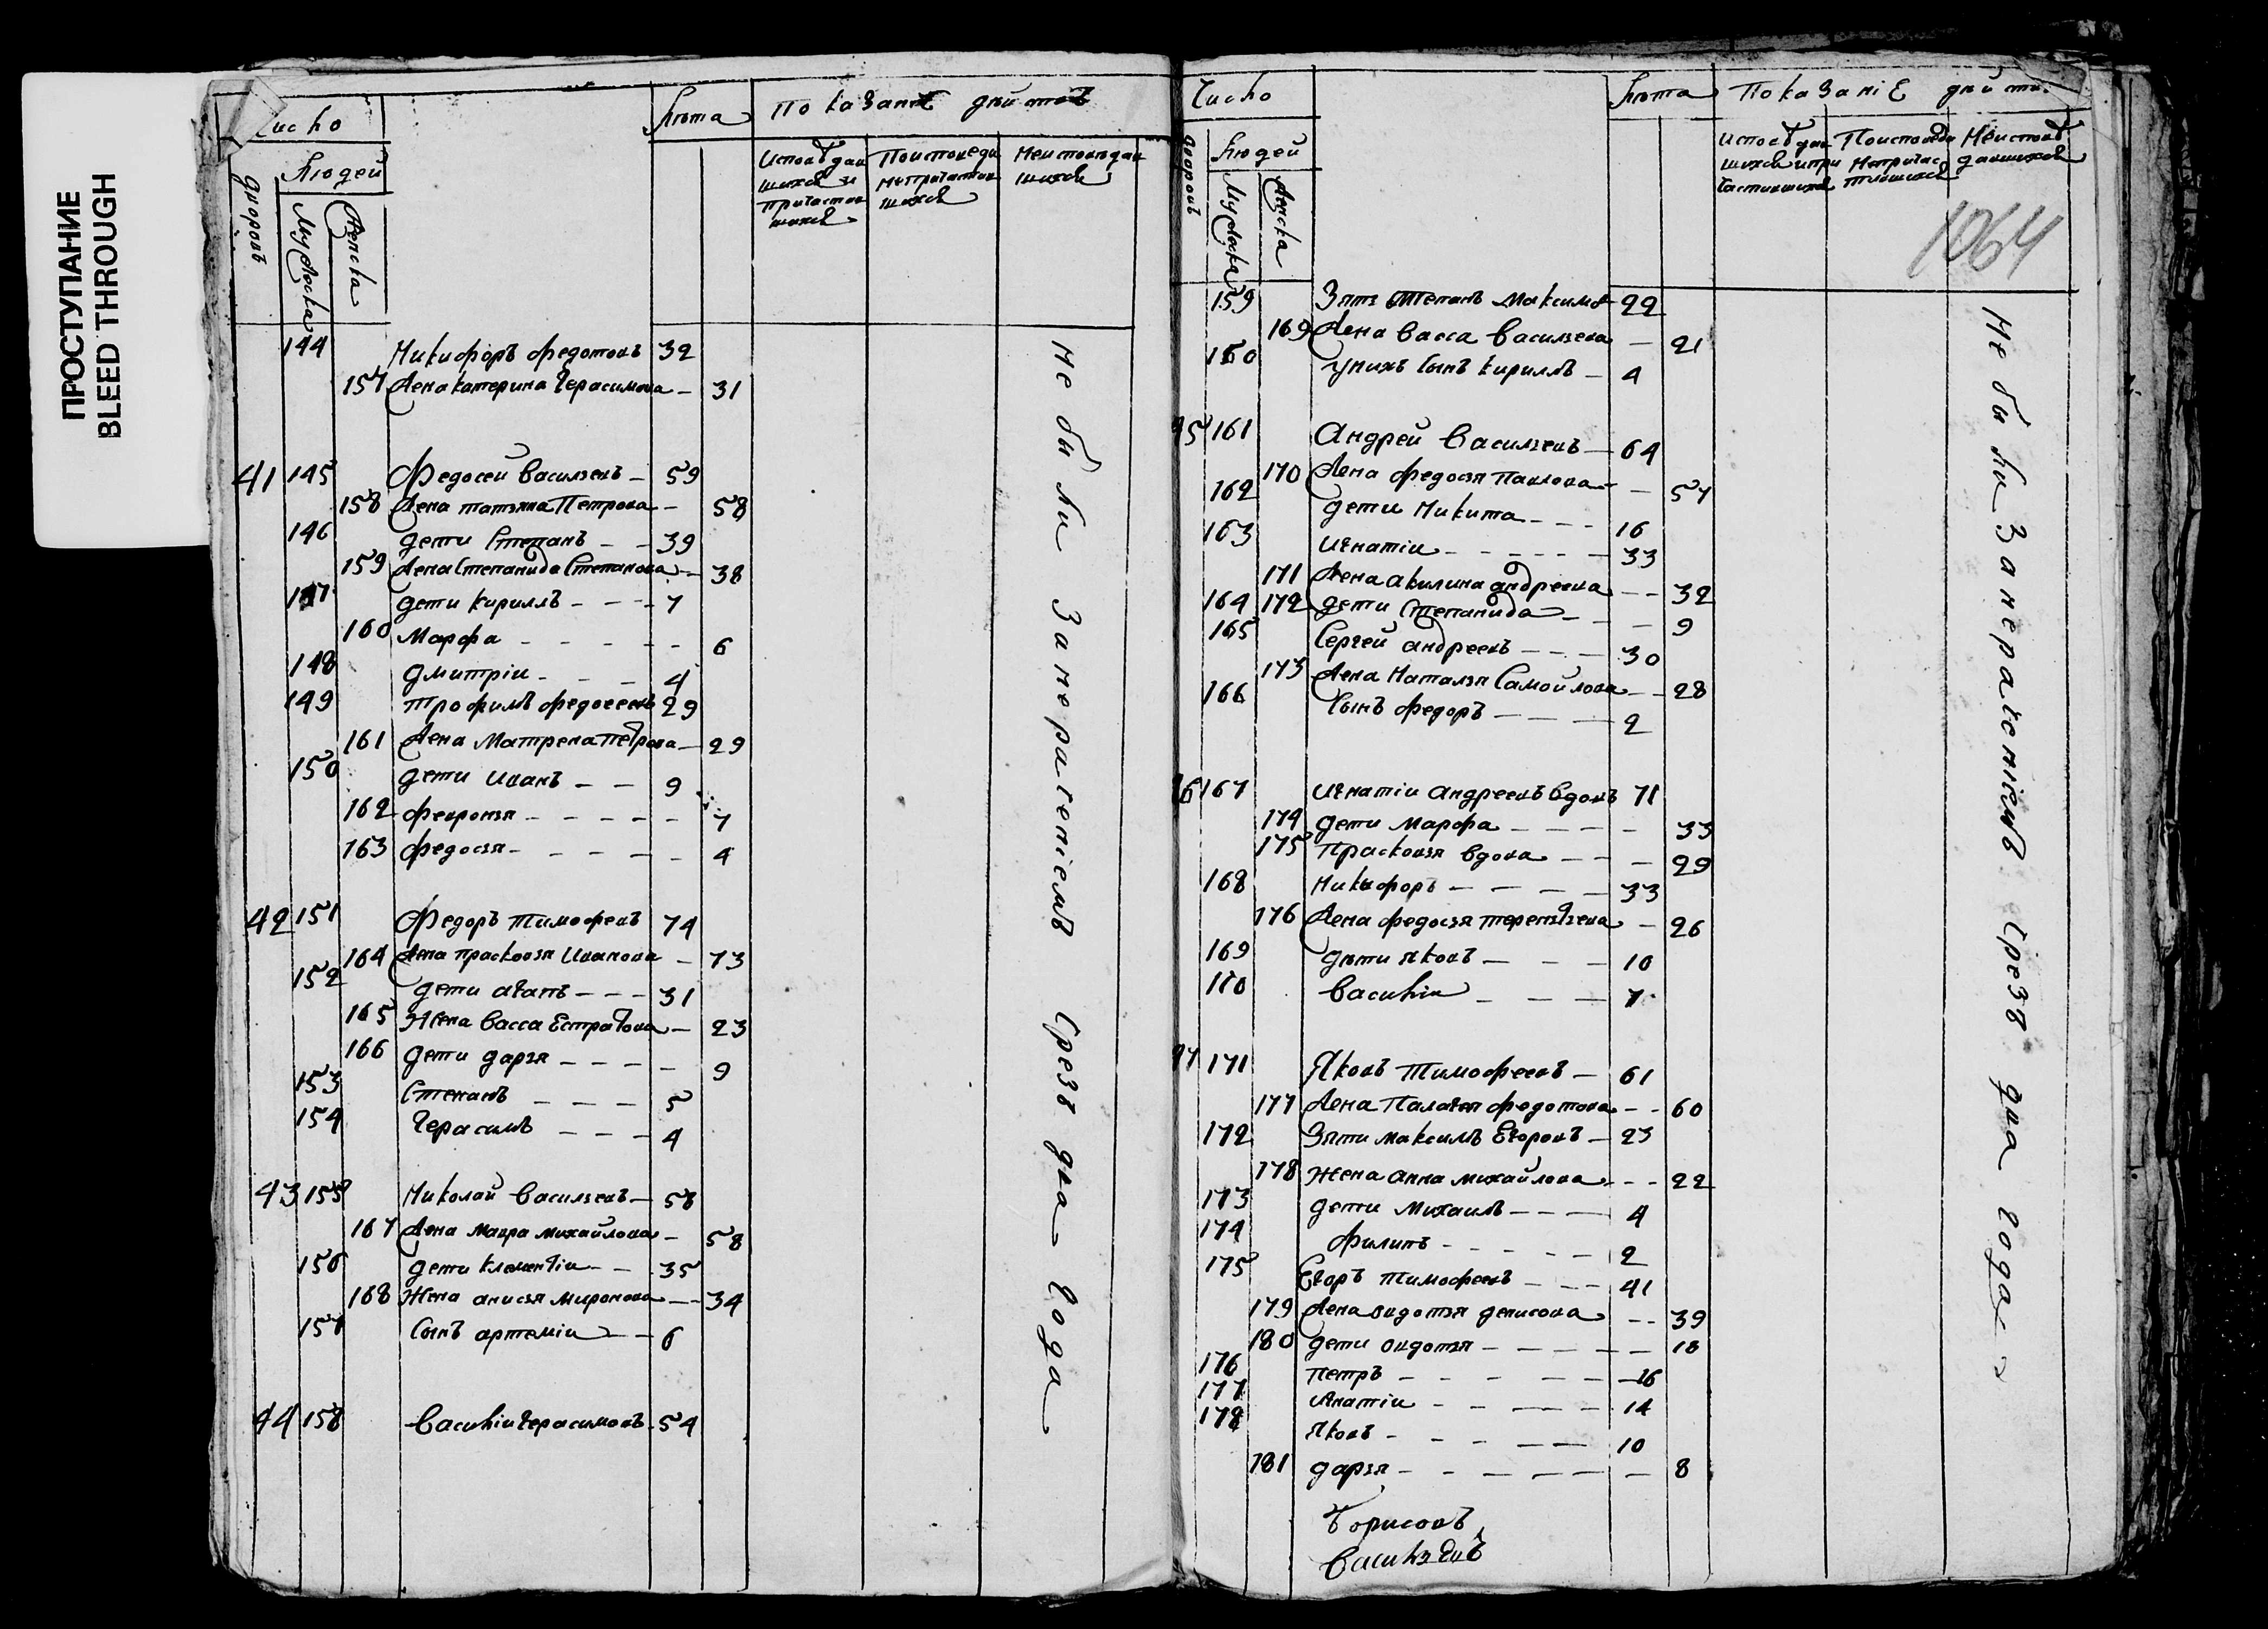 ПРОСТУПАНИЕ
BLEED THROUGH
Число
Лѣта
Показаніе действ
дворовъ
Людей
Мужеска
Женска
Исповѣдав
шихся и
причастив
шихся
Поисповеди
непричастив
шихся
Неисповѣдав
шихся
144 Никифоръ Федотовъ 32
157 Жена Катерина Герасимова 31
41 145 Федосей Васильевъ 59
158 Жена Татьяна Петрова 58
146 дети Степанъ 39
159 Жена Степанида Степанова 38
147 дети Кириллъ 7
160 Марфа 6
148 Дмитріи 4
149 Трофимъ Федосеевъ 29
161 Жена Матрена Петрова 29
150 дети Иванъ 9
162 Февронья 7
163 Федосья 4
42 151 Федоръ Тимофеевъ 74
164 Жена Прасковья Иванова 73
152 дети Агапъ 31
165 Жена Васса Естратова 23
166 дети Дарья 9
153 Степанъ 5
154 Герасимъ 4
43 155 Николай Васильевъ 58
167 Жена Мавра Михайлова 58
156 дети Клементіи 35
168 Жена Анисья Миронова 34
157 сынъ Артеміи 6
44 158 Василіи Герасимовъ 54
Не были За нераченіемъ Чрезъ два года
Число
Лѣта
Показаніе действ
дворовъ
Людей
Мужеска
Женска
Исповѣдав
шихся и при
частившихся
Поисповеди
непричас
тившихся
Неисповѣ
давшихся
1064
159 Зять Степанъ Максимов 22
169 Жена Васса Васильева 21
160 У нихъ сынъ Кириллъ 4
45 161 Андрей Васильевъ 64
170 Жена Федосья Павлова 57
162 дети Никита 16
163 Игнатіи 33
171 Жена Акилина Андреева 32
164 172 дети Степанида 9
165 Сергей Андреевъ 30
173 Жена Наталья Самойлова 28
166 сынъ Федоръ 2
46 167 Игнатіи Андреевъ вдовъ 71
174 дети Марфа 33
175 Прасковья вдова 29
168 Никифоръ 33
176 Жена Федосья Терентьева 26
169 дѣти Яковъ 10
170 Василіи 7
47 171 Яковъ Тимофеевъ 61
177 Жена Палагея Федотова 60
172 Зяти Максимъ Егоровъ 23
178 Жена Анна Михайлова 22
173 дети Михаилъ 4
174 Филипъ 2
175 Егоръ Тимофеевъ 41
179 Жена Овдотья Денисова 39
180 дети Овдотья 18
176 Петръ 16
177 Игнатіи 14
178 Яковъ 10
181 Дарья 8
Не были За нераченіемъ Чрезъ два года
Борисовъ
Васильевъ